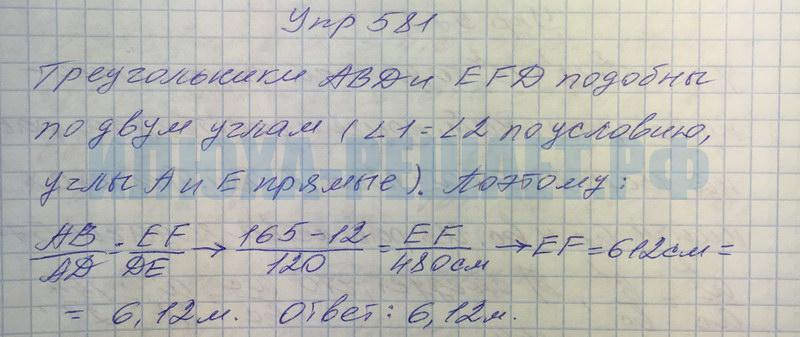 Упр 581
Треугольники ABD и EFD подобны
по двум углам (∠1=∠2 по условию,
углы A и E прямые). Поэтому:
AB/AD = EF/DE → 165-12/120 = EF/480см → EF=612см=
= 6,12м. Ответ: 6,12м.
ИЛЮХА-РЕШАЕТ.РФ